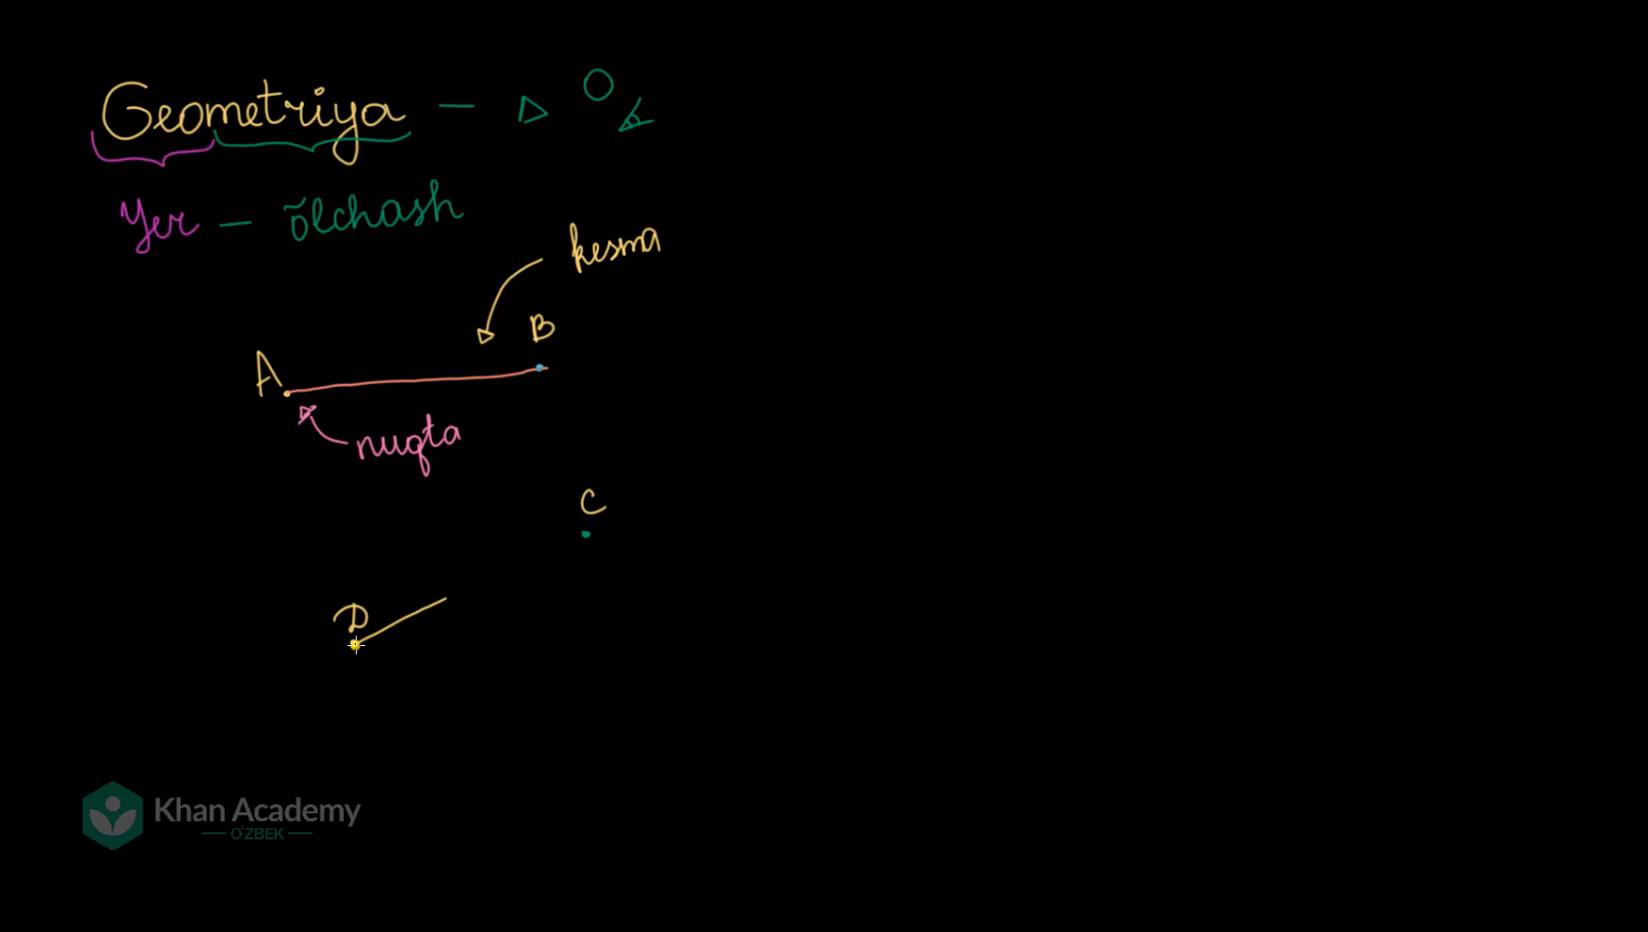 Geometriya —
Yer — õlchash
kesma
B
A
nuqta
C
D
Khan Academy
O'ZBEK